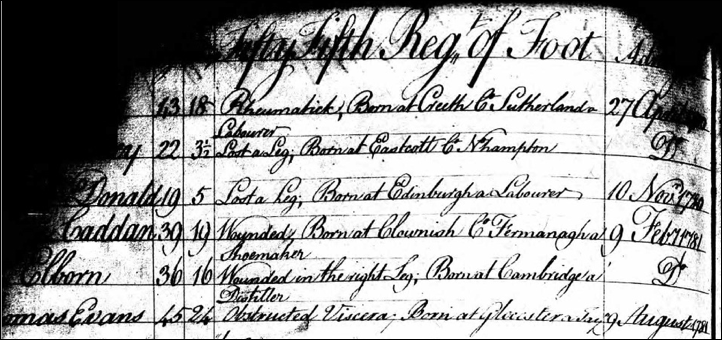 Fifty Fifth Regt. of Foot
43 18 Rheumatick, Born at Creech Co. Sutherland a 27 April
Labourer
22 3½ Lost a Leg, Born at Eastcott Co. Nhampton Do.
Donald 19 5 Lost a Leg, Born at Edinburgh a Labourer 10 Novr. 1780
Caddan 39 19 Wounded, Born at Clownish Co. Fermanagh a 9 Feby 1781
Shoemaker
Elborn 36 16 Wounded in the right Leg, Born at Cambridge a Do.
Distiller
mas Evans 45 24 Obstructed Viscera, Born at Glocester a Taylr 9 August 1781